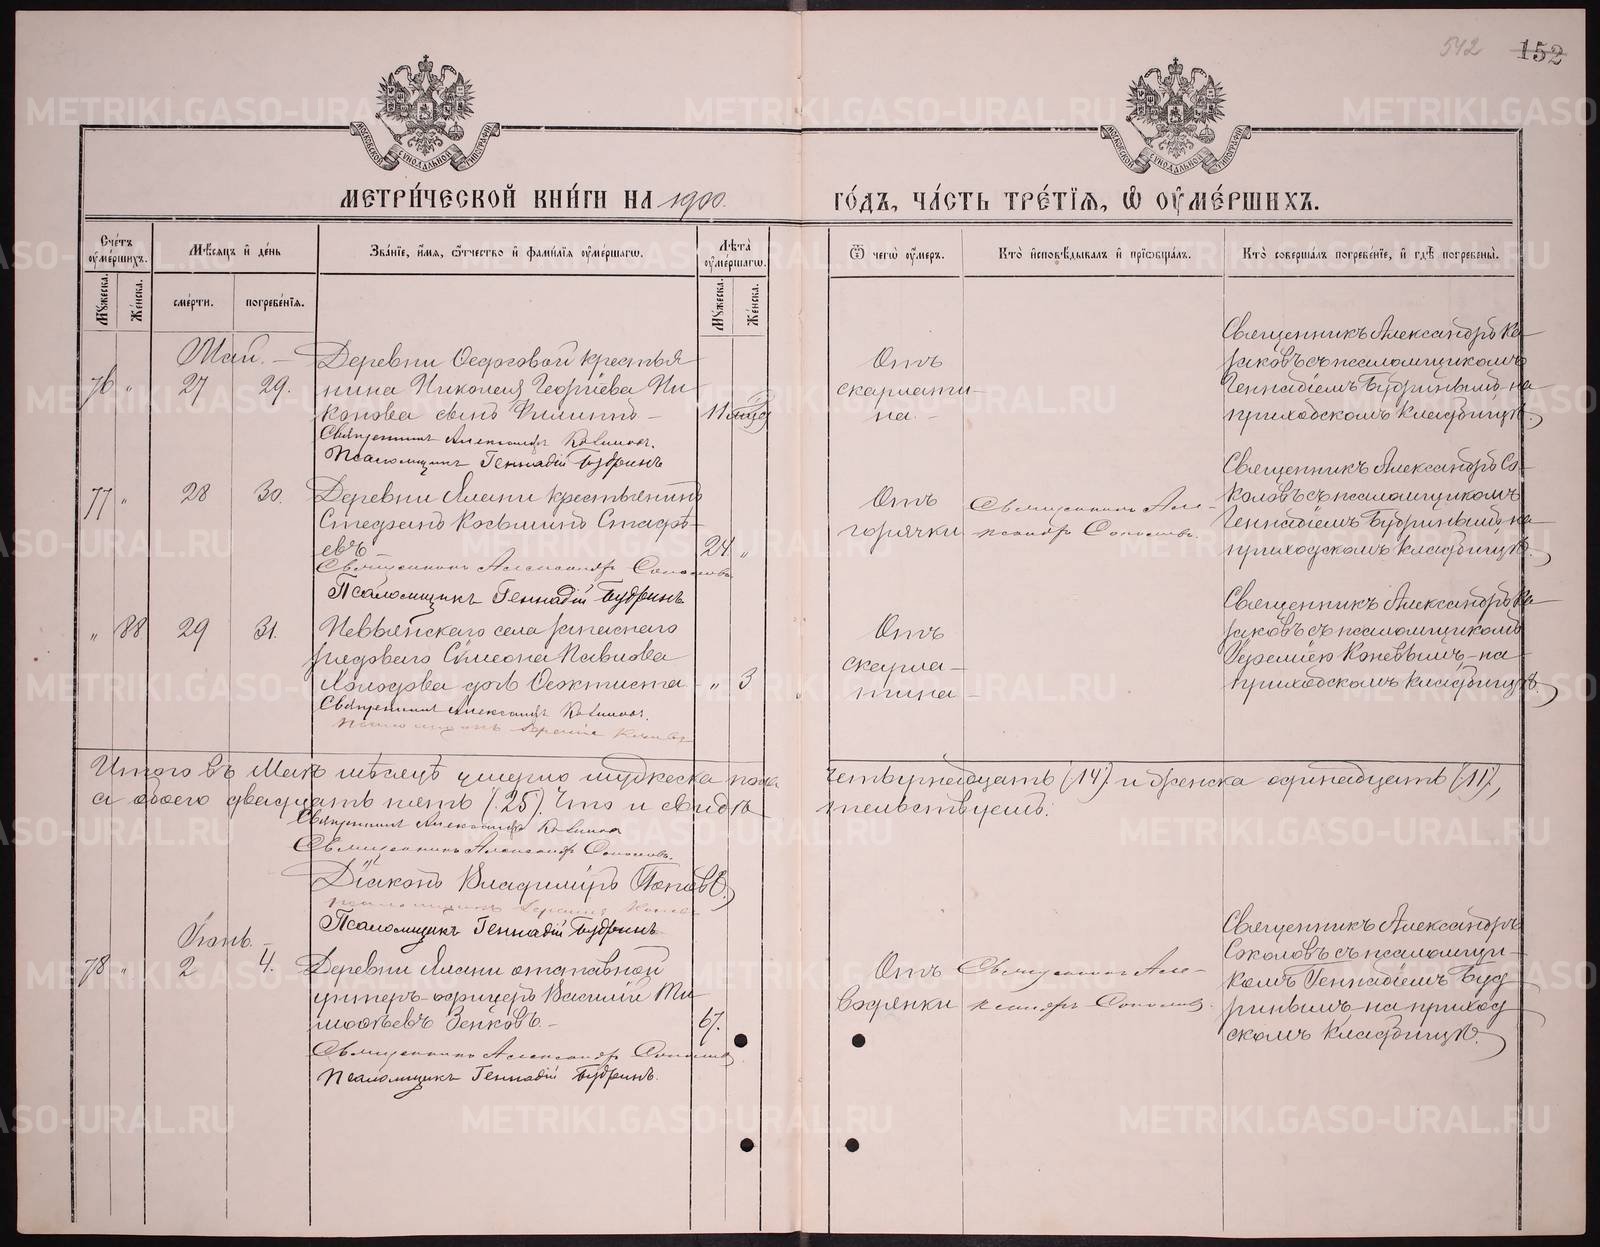 542 152
МЕТРИ́ЧЕСКОЙ КНИ́ГИ НА 1900. ГО́ДЪ, ЧА́СТЬ ТРЕ́ТІЯ, Ѡ ОУМЕ́РШИХЪ.
Сче́тъ оуме́ршихъ.
Му́жеска.
Же́нска.
Мѣ́сяцъ и де́нь
сме́рти.
погребе́нія.
Зва́ніе, и́мя, ѻ́тчество и фами́лія оуме́ршагѡ.
Лѣ́та оуме́ршагѡ.
Му́жеска.
Же́нска.
Ѿ чегѡ̀ оу́меръ.
Кто̀ исповѣ́дывалъ и прїѡбща́лъ.
Кто̀ соверша́лъ погребе́ніе, и гдѣ̀ погребены̀.
Май.
76 " 27 29.
Деревни Ѳедосовой крестья
нина Николая Георгіева Ни
конова сынъ Филиппъ
11 мѣс.
Священникъ Александръ
Псаломщикъ Геннадій Будринъ
Отъ
скарлати
на.
Священникъ Александръ
съ псаломщикомъ
Геннадіемъ Будринымъ на
приходскомъ кладбищѣ.
77 " 28 30.
Деревни Ялани крестьянинъ
Стефанъ Косьминъ Старѣ
евъ
24 "
Священникъ Александръ Соколовъ
Псаломщикъ Геннадій Будринъ
Отъ
горячки
Священникъ Але-
ксандръ Соколовъ.
Священникъ Александръ Со-
коловъ съ псаломщикомъ
Геннадіемъ Будринымъ на
приходскомъ кладбищѣ.
" 88 29 31.
Невьянскаго села запаснаго
рядоваго Симеона Павлова
дочь Ѳеоктиста
" 3
Священникъ Александръ
Псаломщикъ Іеремія Коневъ
Отъ
скарла-
тина
Священникъ Александръ
съ псаломщикомъ
Іереміею Коневымъ на
приходскомъ кладбищѣ.
Итого въ Маѣ мѣсяцѣ умерло мужеска пола четырнадцать (14) и женска одинадцать (11),
а обоего двадцать пять (25). Что и свидѣ тельствуемъ:
Священникъ Александръ
Священникъ Александръ Соколовъ.
Діаконъ Владиміръ Поповъ.
Псаломщикъ Іеремія Коневъ
Псаломщикъ Геннадій Будринъ.
Іюнь.
78 " 2 4.
Деревни Ялани отставной
унтеръ-офицеръ Василій Ти
моѳеевъ Зенковъ.
67.
Священникъ Александръ Соколовъ
Псаломщикъ Геннадій Будринъ.
Отъ
водянки
Священникъ Але-
ксандръ Соколовъ.
Священникъ Александръ
Соколовъ съ псаломщи-
комъ Геннадіемъ Буд
ринымъ на приход
скомъ кладбищѣ.
METRIKI.GASO-URAL.RU